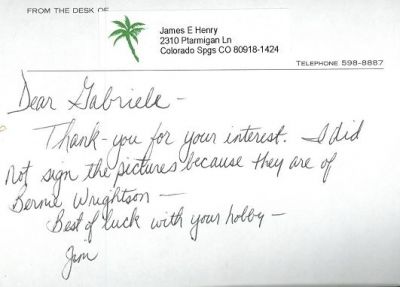 FROM THE DESK OF
James E Henry
2310 Ptarmigan Ln
Colorado Spgs CO 80918-1424
TELEPHONE 598-8887
Dear Gabriele -
Thank-you for your interest. I did
not sign the pictures because they are of
Bernie Wrightson -
Best of luck with your hobby -
Jim